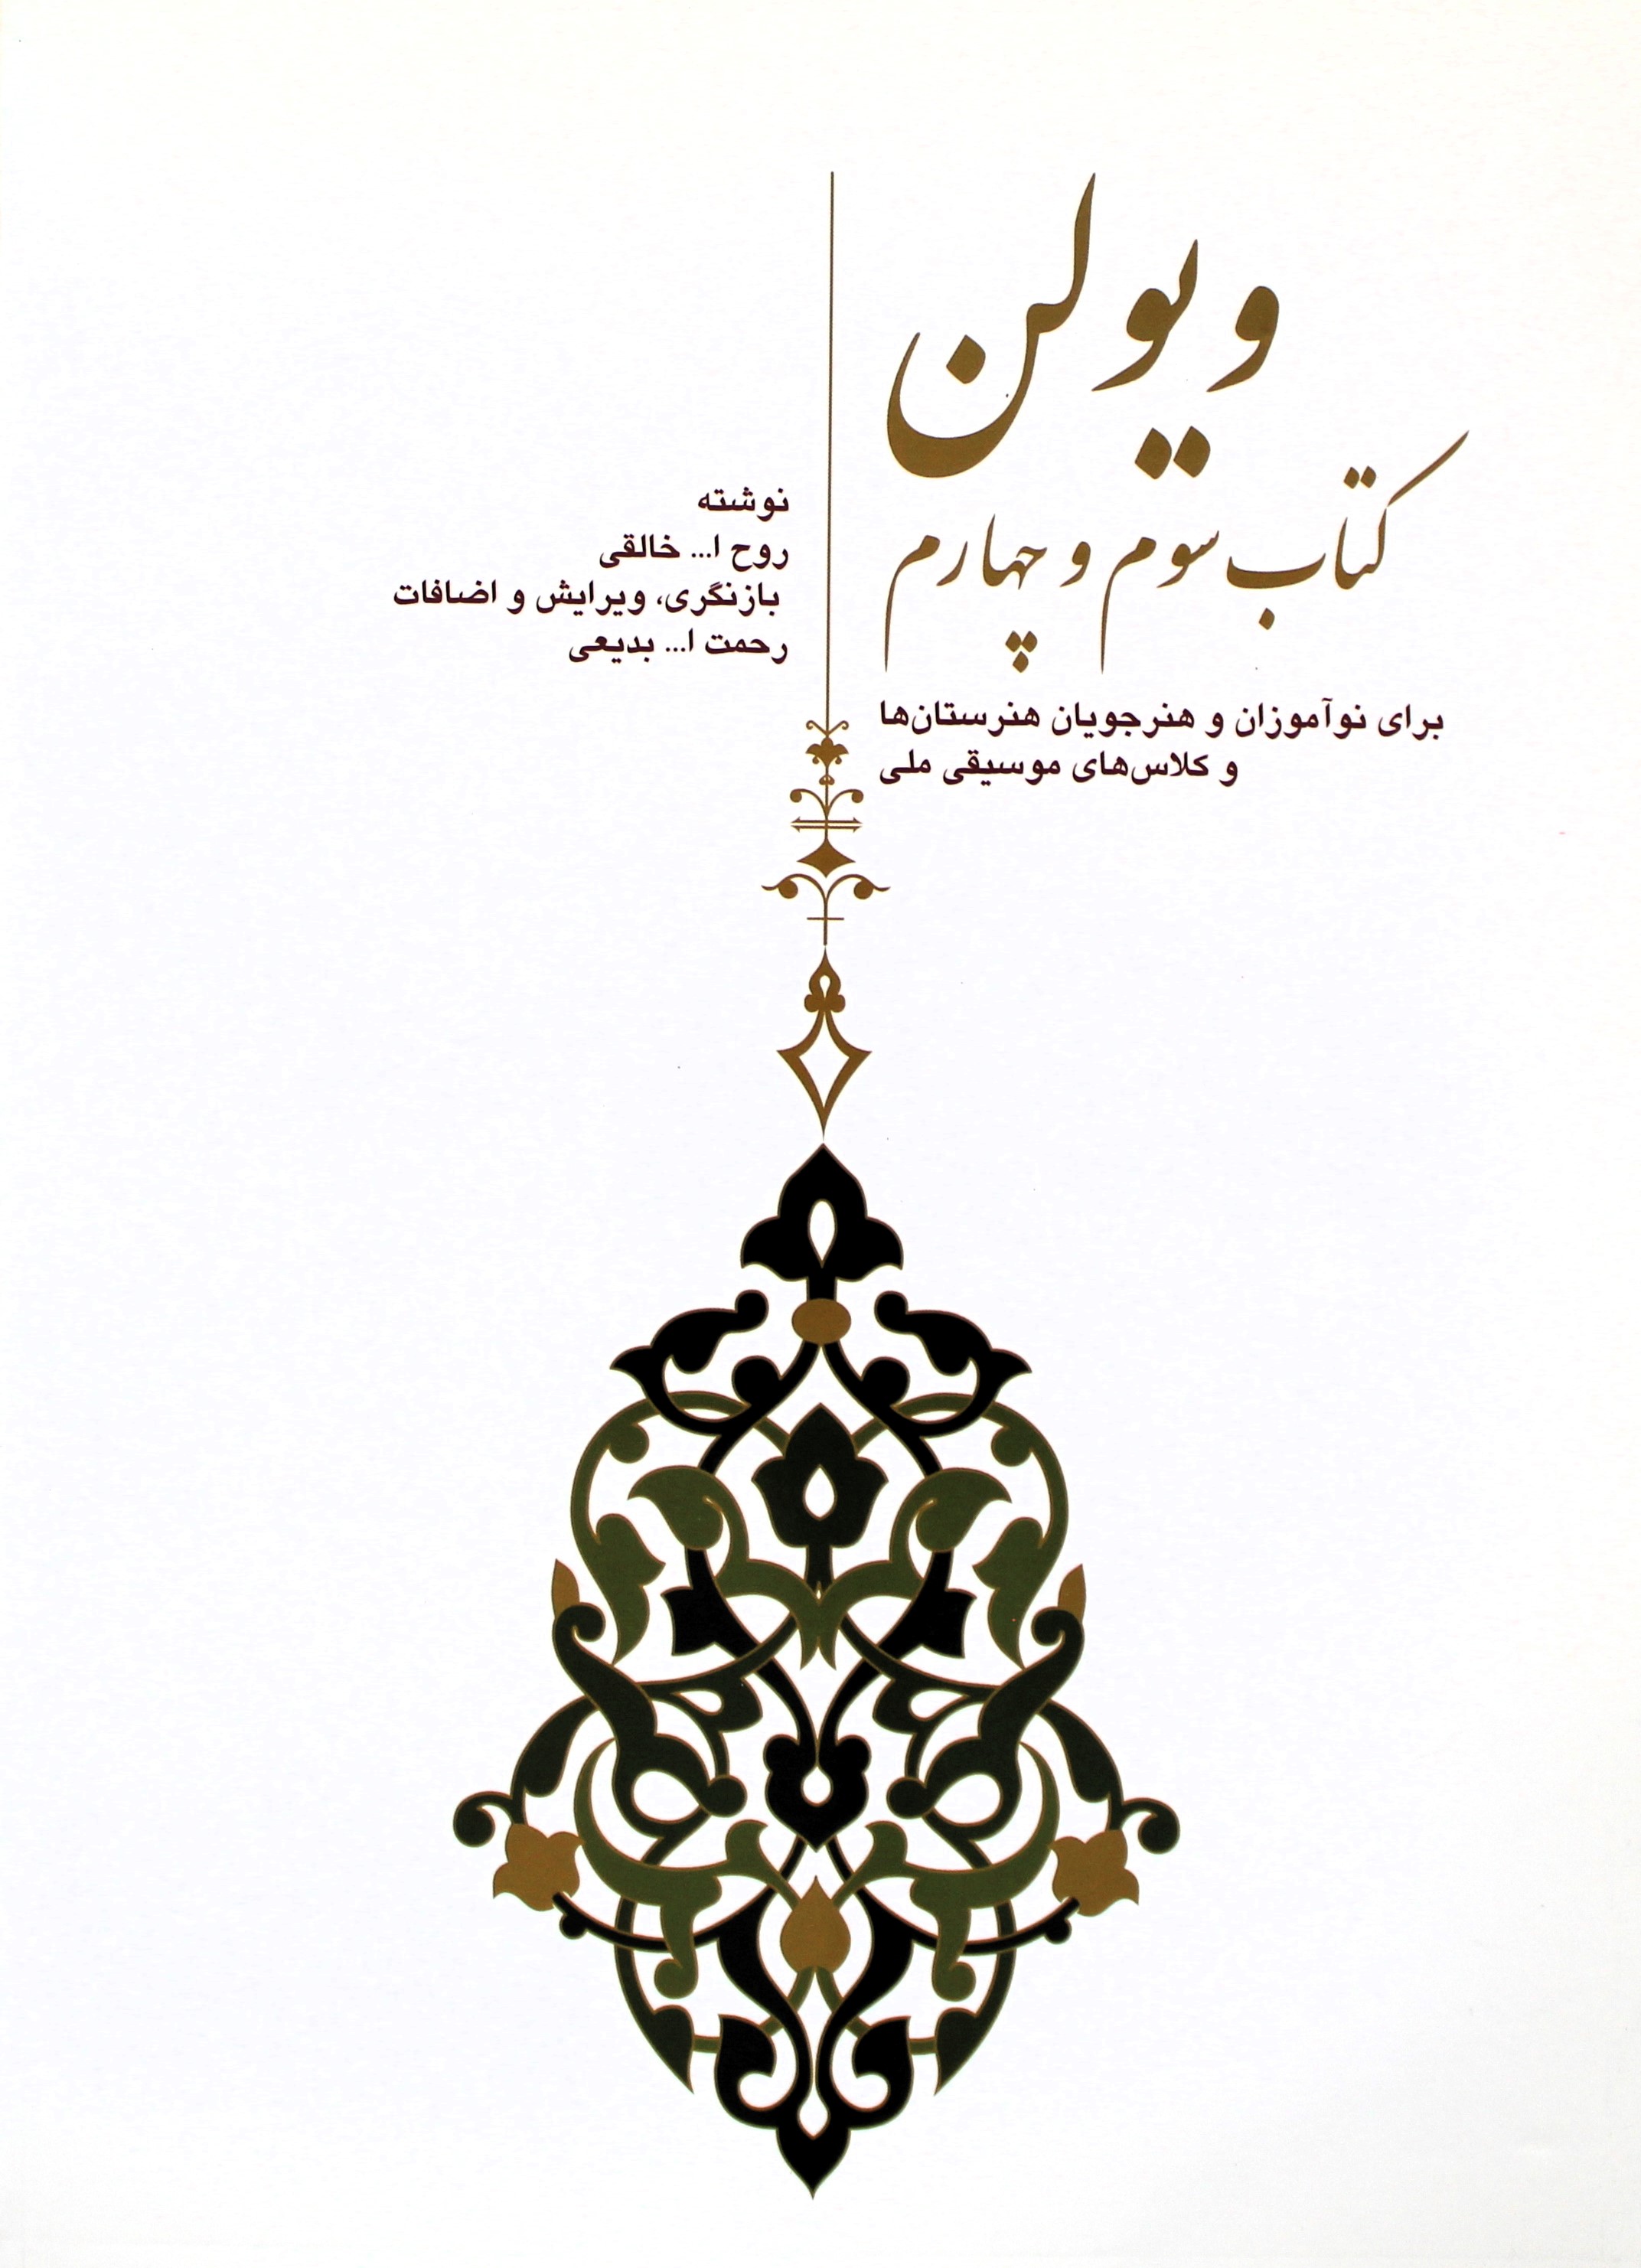 ویولن
کتاب سوم و چهارم
برای نوآموزان و هنرجویان هنرستان‌ها
و کلاس‌های موسیقی ملی
نوشته
روح ا... خالقی
بازنگری، ویرایش و اضافات
رحمت ا... بدیعی